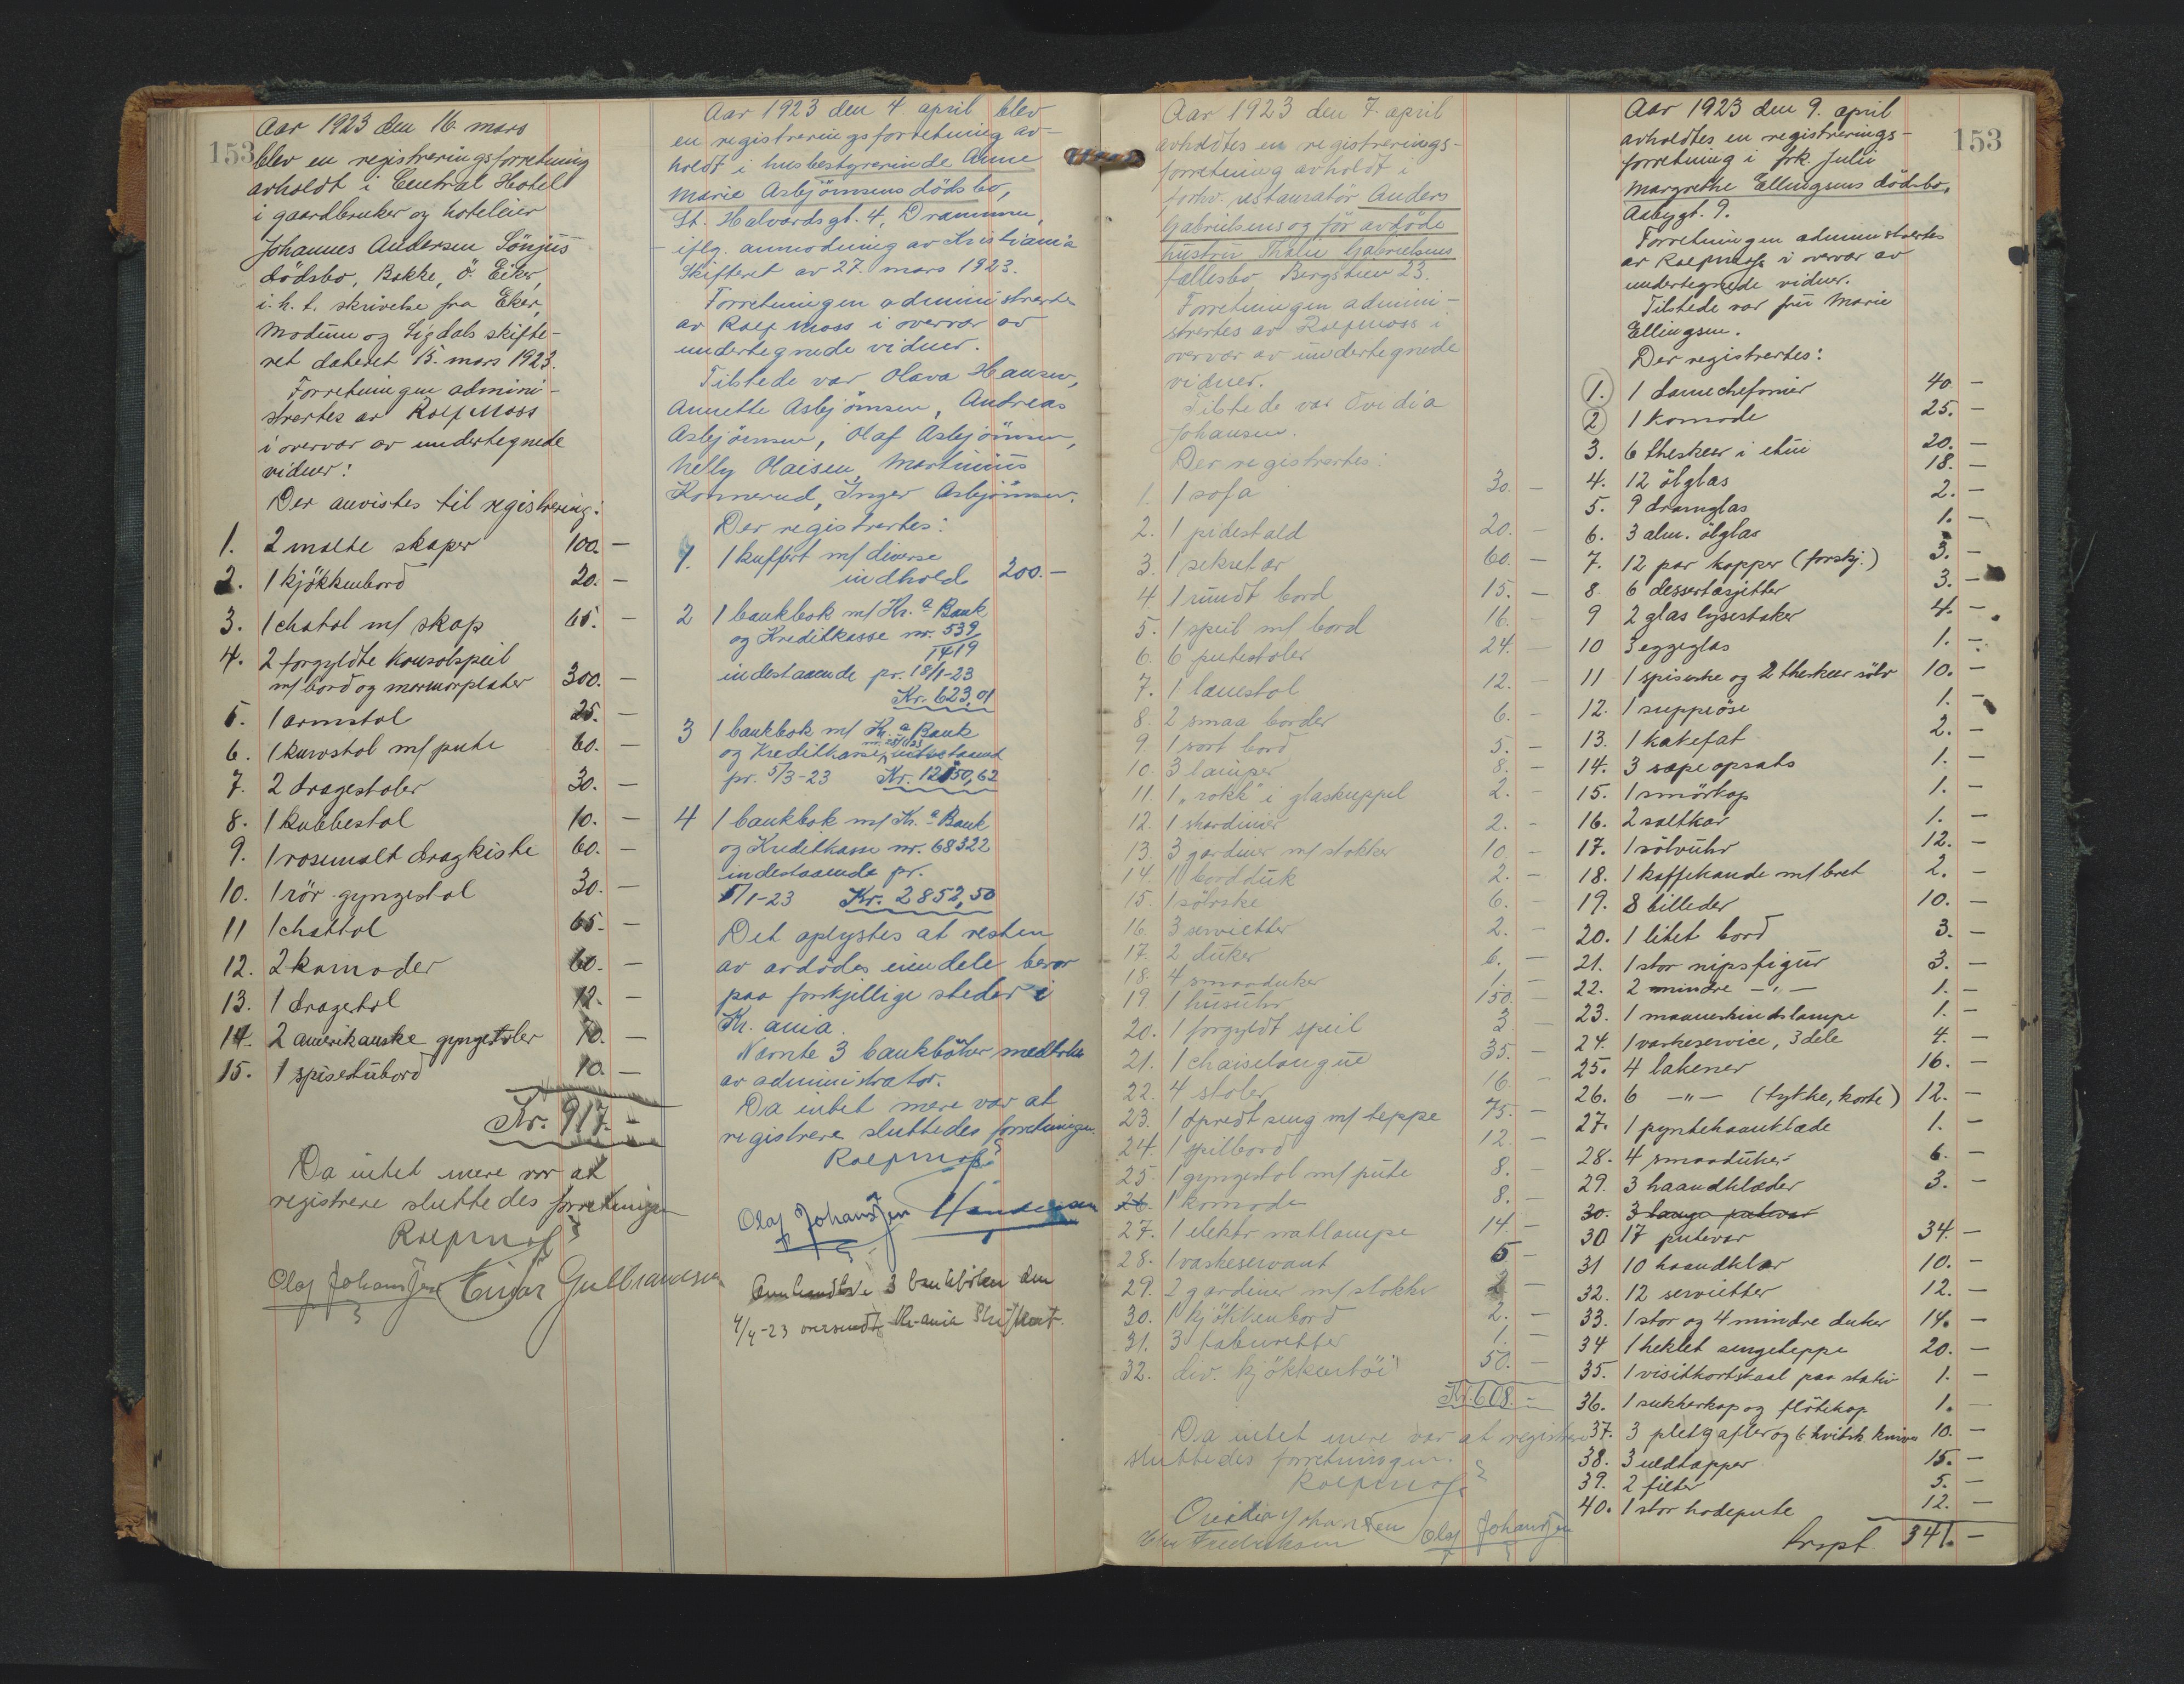 153
Aar 1923 den 16. mars
blev en registreringsforretning
avholdt i Central Hotel
i gaardbruker og hoteleier
Johannes Andersen Sönjus
dödsbo, Bakke, Ö. Eiker,
i. h. t. skrivelse fra Eker,
Modum og Sigdals skifte-
ret dateret 15. mars 1923.
Forretningen admini-
strertes av Rolf Moss
i overvær av undertegnede
vidner:
Der anvistes til registrering:
1. 2 malte skaper 100. —
2. 1 kjökkenbord 20. —
3. 1 chatol m/ skap 65. —
4. 2 forgyldte konsolspeil
m/ bord og marmorplater 300. —
5. 1 armstol 25. —
6. 1 kurvstol m/ pute 60. —
7. 2 dragestoler 30. —
8. 1 kubbestol 10. —
9. 1 rosemalt dragkiste 60. —
10. 1 rör gyngestol 30. —
11 1 chattol 65. —
12. 2 komoder 60. —
13. 1 dragestol 12. —
14. 2 amerikanske gyngestoler 70. —
15. 1 spisestubord 10. —
Kr. 917. —
Da intet mere var at
registrere sluttedes forretningen
Rolf Moss
Olaf Johansen Einar Gulbrandsen
Aar 1923 den 4. april blev
en registreringsforretning av-
holdt i husbestyrerinde Anne
Marie Asbjörnsens dödsbo,
St. Halvardsgt. 4, Drammen,
- iflg. anmodning av Kristiania
Skifteret av 27. mars 1923.
Forretningen administrertes
av Rolf Moss i overvær av
undertegnede vidner.
Tilstede var Olava Hansen,
Annette Asbjörnsen, Andreas
Asbjörnsen, Olaf Asbjörnsen,
Nelly Olaisen, Martinius
Konnerud, Inger Asbjörnsen.
Der registrertes:
1. 1 kuffert m/ diverse
indhold 200. —
2 1 bankbok m/ Kr.a Bank
og Kreditkasse nr. 539
1419
indestaaende pr. 18/1-23
Kr. 623,01
3 1 bankbok m/ Kr.a Bank
og Kreditkasse, indestaaende
pr. 5/3-23 Kr. 12150,62
4 1 bankbok m/ Kr.a Bank
og Kreditkasse nr. 68322
indestaaende pr.
5/1-23 Kr. 2852,50
Det oplystes at resten
av avdödes eiendele beror
paa forskjellige steder i
Kr. ania.
Nævnte 3 bankböker medtokes
av administrator.
Da intet mere var at
registrere sluttedes forretningen.
Rolf Moss
Olaf Johansen
3 bankböker den
4/4-23 oversendt Kr-ania Skifteret.
Aar 1923 den 7. april
avholdtes en registrerings-
forretning avholdt i
forhv. restauratör Anders
Gabrielsens og för avdöde
hustru Thalie Gabrielsens
fællesbo, Bergstien 23.
Forretningen admini-
strertes av Rolf Moss i
overvær av undertegnede
vidner.
Tilstede var Ovidia
Johansen.
Der registrertes:
1. 1 sofa 30. —
2. 1 pidestald 20. —
3. 1 sekretær 60. —
4. 1 rundt bord 15. —
5. 1 speil m/ bord 16. —
6. 6 putestoler 24. —
7. 1 lænestol 12. —
8. 2 smaa border 6. —
9. 1 sort bord 5. —
10. 3 lamper 8. —
11. 1 "rokk" i glaskuppel 2. —
12. 1 skardinier 2. —
13. 3 gardiner m/ stokker 10. —
14. 1 bordduk 2. —
15. 1 sölvske 6. —
16. 3 servietter 2. —
17. 2 duker 6. —
18. 4 smaaduker 1. —
19 1 husuhr 150. —
20. 1 forgyldt speil 3. —
21. 1 chaiselongue 35. —
22. 4 stoler 16. —
23. 1 opredt seng m/ teppe 75. —
24. 1 spilbord 12. —
25. 1 gyngestol m/ pute 8. —
26. 1 komode 8. —
27. 1 elektr. natlampe 14. —
28. 1 vaskeservant 5 —
29. 2 gardiner m/ stokker 2 —
30. 1 kjökkenbord 2. —
31. 3 taburetter 1. —
32. div. kjökkentöi 50. —
Kr. 608. —
Da intet mere var at registrere
sluttedes forretningen.
Rolf Moss
Ovidia Johansen Olaf Johansen
Fredriksen
153
Aar 1923 den 9. april
avholdtes en registrerings-
forretning i frk. Julie
Margrethe Ellingsens dödsbo,
Asbygt. 9.
Forretningen administrertes
av Rolf Moss i overvær av
undertegnede vidner.
Tilstede var fru Marie
Ellingsen.
Der registrertes:
1. 1 damechefonier 40. —
2 1 komode 25. —
3. 6 theskeer i etui 20. —
4. 12 ölglas 18. —
5. 9 dramglas 2. —
6. 3 alm. ölglas 1. —
7. 12 par kopper (forskj.) 3. —
8. 6 dessertasjetter 3. —
9 2 glas lysestaker 4. —
10 3 eggeglas 1. —
11 1 spiseske og 2 theskeer sölv 10. —
12. 1 suppeöse 1. —
13. 1 kakefat 2. —
14. 3 sæpeopsats 1. —
15. 1 smörkop 1. —
16. 2 saltkar 1. —
17. 1 sölvuhr 12. —
18. 1 kaffekande m/ bret 2. —
19. 8 billeder 10. —
20. 1 litet bord 3. —
21. 1 stor nipsfigur 3. —
22. 2 mindre —"— 1. —
23. 1 maaneskindslampe 1. —
24. 1 vaskeservice, 3 dele 4. —
25. 4 lakener 16. —
26. 6 —"— (tykke, korte) 12. —
27. 1 pyntehaandklæde 1. —
28. 4 smaaduker 6. —
29. 3 haandklæder 3. —
30. 3 lange putevar
30 17 putevar 34. —
31 10 haandklær 10. —
32. 12 servietter 12. —
33. 1 stor og 4 mindre duker 14. —
34 1 heklet sengeteppe 20. —
35. 1 visitkortskaal paa stativ 1. —
36. 1 sukkerkop og flötekop 1. —
37. 3 pletgafler og 6 hvitsk. kniver 10. —
38. 3 uldtæpper 15. —
39. 2 filter 5. —
40. 1 stor hodepute 12. —
Trspt. 341. —